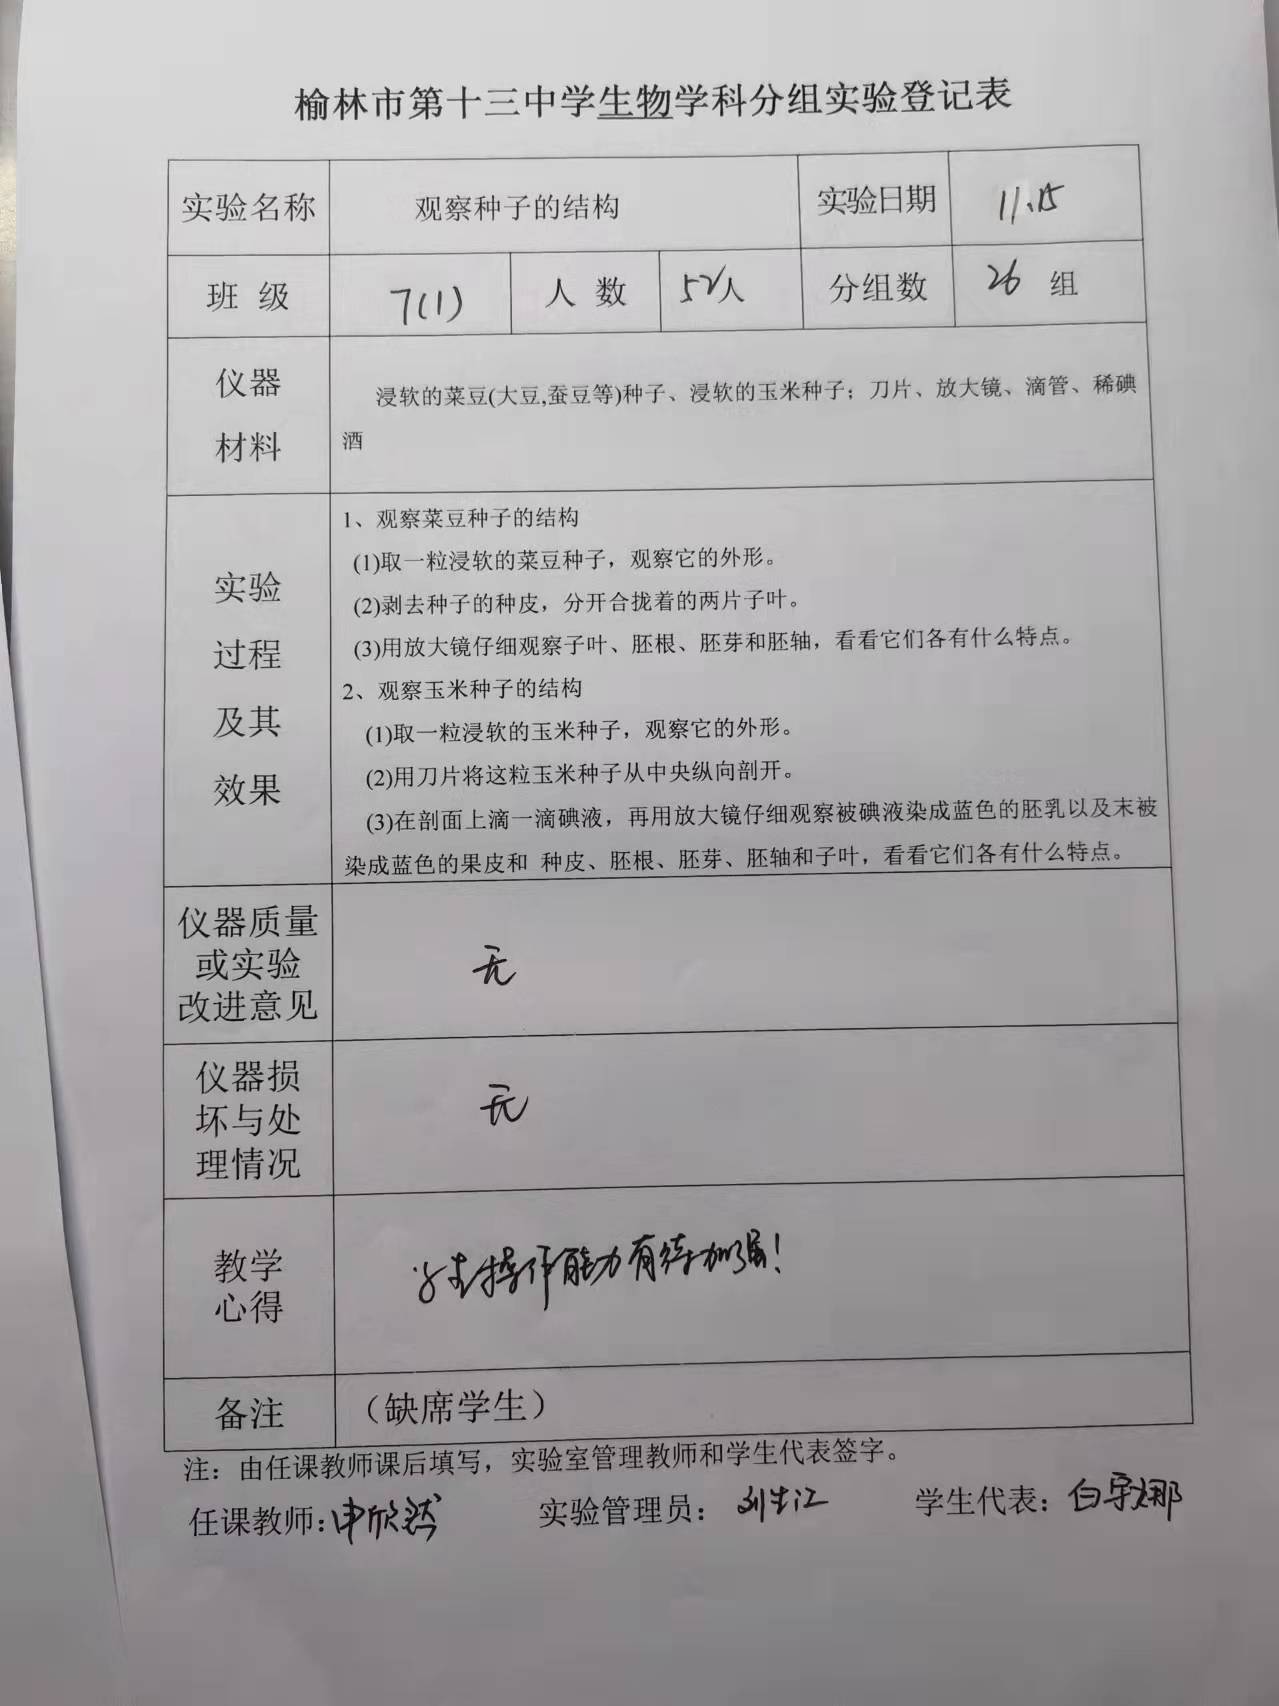 榆林市第十三中学生物学科分组实验登记表
实验名称 观察种子的结构 实验日期 11.15
班 级 7(1) 人 数 52人 分组数 26 组
仪器
材料
浸软的菜豆(大豆,蚕豆等)种子、浸软的玉米种子；刀片、放大镜、滴管、稀碘
酒
实验
过程
及其
效果
1、观察菜豆种子的结构
(1)取一粒浸软的菜豆种子，观察它的外形。
(2)剥去种子的种皮，分开合拢着的两片子叶。
(3)用放大镜仔细观察子叶、胚根、胚芽和胚轴，看看它们各有什么特点。
2、观察玉米种子的结构
(1)取一粒浸软的玉米种子，观察它的外形。
(2)用刀片将这粒玉米种子从中央纵向剖开。
(3)在剖面上滴一滴碘液，再用放大镜仔细观察被碘液染成蓝色的胚乳以及末被
染成蓝色的果皮和 种皮、胚根、胚芽、胚轴和子叶，看看它们各有什么特点。
仪器质量
或实验
改进意见
无
仪器损
坏与处
理情况
无
教学
心得
学生操作能力有待加强!
备注 （缺席学生）
注：由任课教师课后填写，实验室管理教师和学生代表签字。
任课教师:申欣然 实验管理员： 刘生江 学生代表：白宇娜